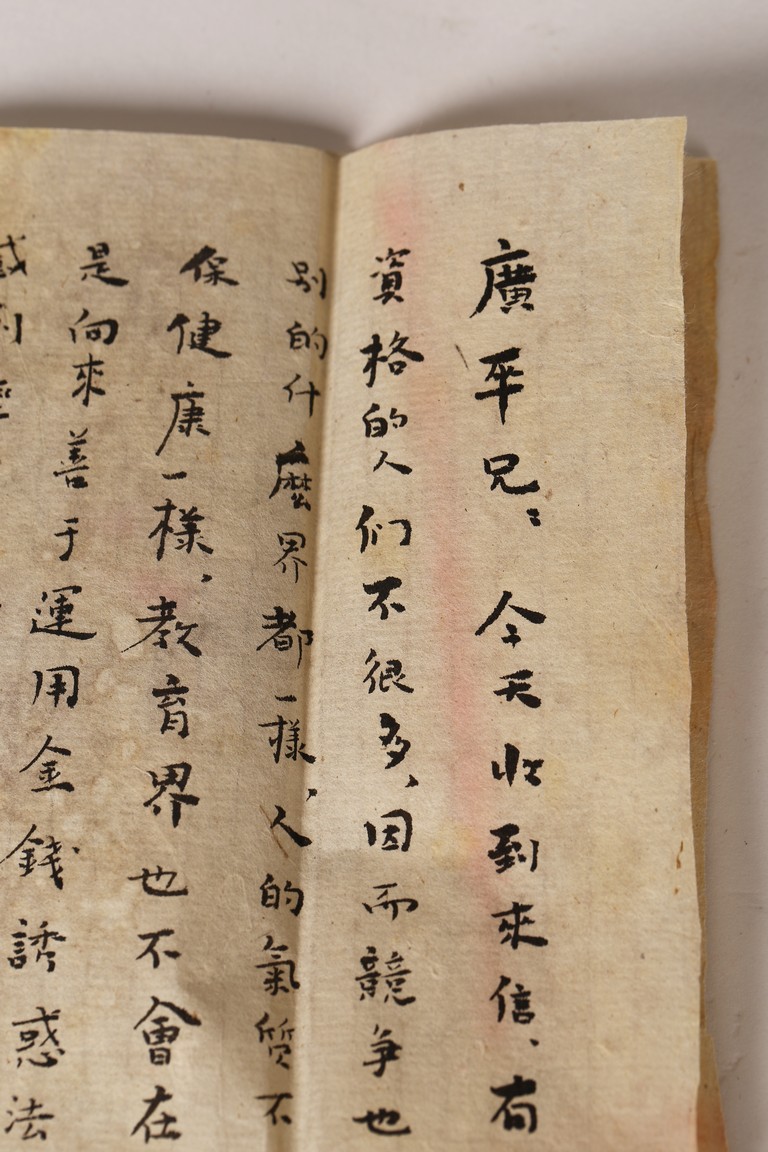 廣平兄：今天收到來信、有
資格的人们不很多、因而競爭也
别的什麽界都一樣，人的氣质不
保健康一樣，教育界也不會在
是向來善于運用金錢誘惑法
感到